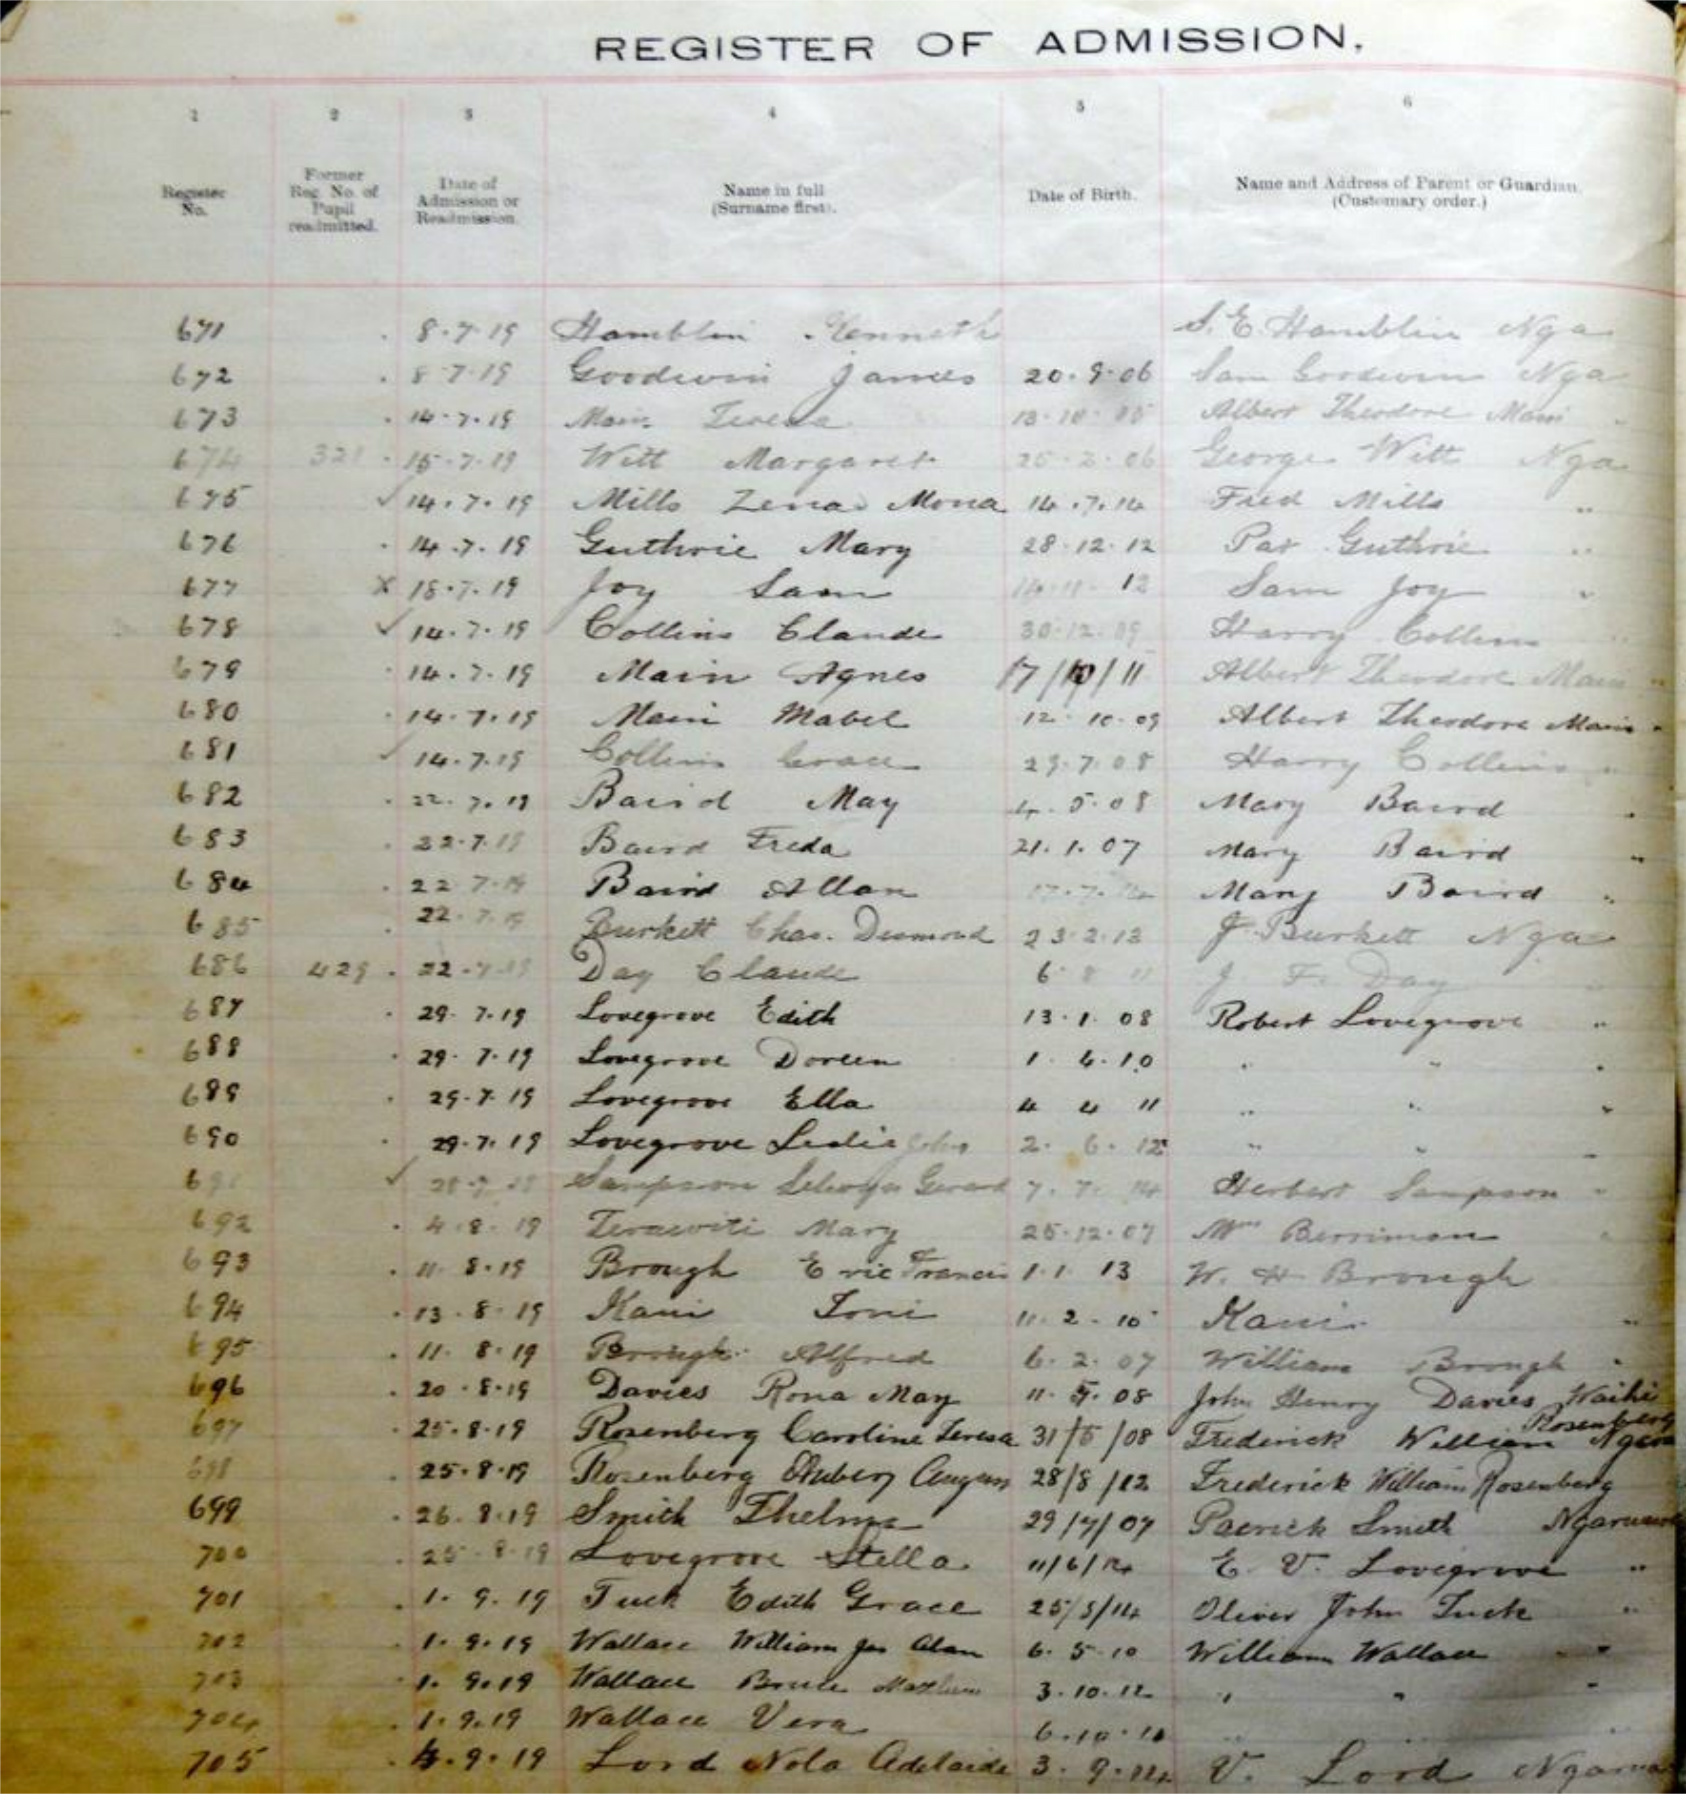 REGISTER OF ADMISSION.
1 2 3 4 5 6
Register No. Former Reg. No. of Pupil readmitted. Date of Admission or Readmission. Name in full (Surname first). Date of Birth. Name and Address of Parent or Guardian. (Customary order.)
671 . 8.7.19 Hamblin Kenneth S. E. Hamblin Nga
672 . 8 7.19 Goodwin James 20.9.06 Sam Goodwin Nga
673 . 14.7.19 Main Teresa 13.10. Albert Theodore Main "
674 321 . 15.7.19 Witt Margaret 25.2.06 George Witt Nga
675 ✓ 14.7.19 Mills Zena Mona 14.7.14 Fred Mills "
676 . 14.7.19 Guthrie Mary 28.12.12 Pat Guthrie "
677 x 15.7.19 Joy Sam 14.11.12 Sam Joy "
678 ✓ 14.7.19 Collins Claude 30.12.09 Harry Collins "
679 . 14.7.19 Main Agnes 17/10/11 Albert Theodore Main "
680 . 14.7.19 Main Mabel 12.10.09 Albert Theodore Main "
681 ✓ 14.7.19 Collins Grace 29.7.08 Harry Collins "
682 . 22.7.19 Baird May 4.5.08 Mary Baird "
683 . 22.7.19 Baird Freda 21.1.07 Mary Baird "
684 . 22 7.19 Baird Allan 17.7. Mary Baird "
685 . 22.7.19 Burkett Chas. Desmond 23.2.12 J. Burkett Nga
686 429 . 22.7.19 Day Claude 6 8 11 J. F. Day "
687 . 29.7.19 Lovegrove Edith 13.1.08 Robert Lovegrove "
688 . 29.7.19 Lovegrove Doreen 1.4.10 " " "
689 . 29.7.19 Lovegrove Ella 4 4 11 " " "
690 . 29.7.19 Lovegrove Leslie John 2.6.12 " " "
691 ✓ Sampson Selwyn Gerard 7.7.14 Herbert Sampson "
692 . 4.8.19 Terawiti Mary 25.12.07 Mrs Berriman "
693 . 11.8.19 Brough Eric Francis 1.1 13 W. H Brough
694 . 13.8.19 Kani Toni 11.2.10 Kani "
695 . 11.8.19 Brough Alfred 6.2.07 William Brough "
696 . 20.8.19 Davies Rona May 11.9.08 John Henry Davies Waihi
697 . 25.8.19 Rosenberg Caroline Teresa 31/5/08 Frederick William Rosenberg
698 . 25.8.19 Rosenberg Aubery 28/8/12 Frederick William Rosenberg
699 . 26.8.19 Smith Thelma 29/7/07 Patrick Smith
700 . 25.8.19 Lovegrove Stella 11/6/14 E. V. Lovegrove "
701 . 1.9.19 Tuck Edith Grace 25/5/14 Oliver John Tuck "
702 . 1.9.19 Wallace William Jas Alan 6.5.10 William Wallace "
703 . 1.9.19 Wallace Bruce 3.10.12 " " "
704 . 1.9.19 Wallace Vera 6.10.10 " "
705 . 4.9.19 Lord Nola Adelaide 3.9.14 V. Lord